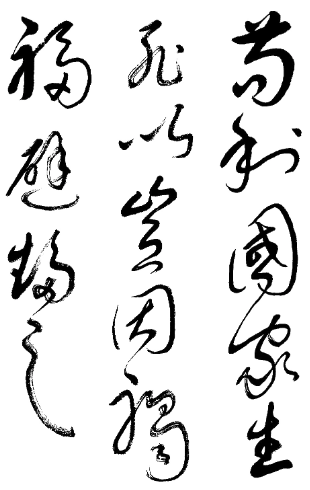 苟利國家生
死以豈因禍
福避趨之